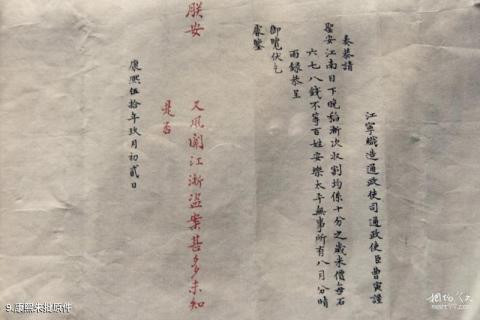 江寧織造通政使司通政使臣曹寅謹
奏恭請
聖安江南目下晚稻漸次收割均係十分之歲米價每石
六七八錢不等百姓安樂太平無事所有八月分晴
雨錄恭呈
御覽伏乞
睿鑒
朕安
又風聞江浙盜案甚多未知
是否
康熙伍拾年玖月初貳日
9.康熙朱批原件